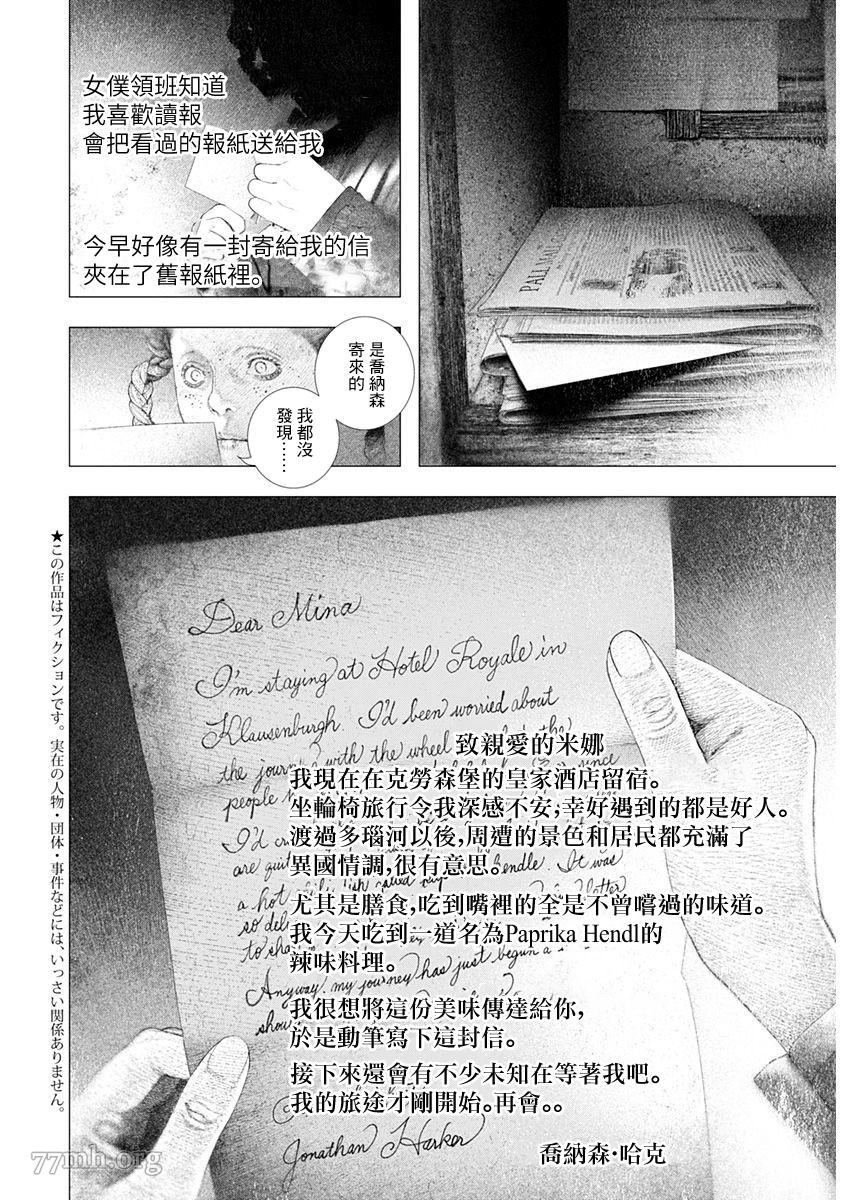 女僕領班知道
我喜歡讀報
會把看過的報紙送給我
今早好像有一封寄給我的信
夾在了舊報紙裡。
PALL MALL G
是喬納森
寄來的
我都沒
發現……
Dear Mina
I'm staying at Hotel Royale in
Klausenburgh. I'd been worried about
the journey with the wheel
people
since
I'd
are quite
hendle. It was
a hot
so
to
Anyway, my journey has just begun
Jonathan Harker
致親愛的米娜
我現在在克勞森堡的皇家酒店留宿。
坐輪椅旅行令我深感不安,幸好遇到的都是好人。
渡過多瑙河以後,周遭的景色和居民都充滿了
異國情調,很有意思。
尤其是膳食,吃到嘴裡的全是不曾嚐過的味道。
我今天吃到一道名為Paprika Hendl的
辣味料理。
我很想將這份美味傳達給你,
於是動筆寫下這封信。
接下來還會有不少未知在等著我吧。
我的旅途才剛開始。再會。。
喬納森·哈克
★この作品はフィクションです。実在の人物・団体・事件などには、いっさい関係ありません。
77mh.org